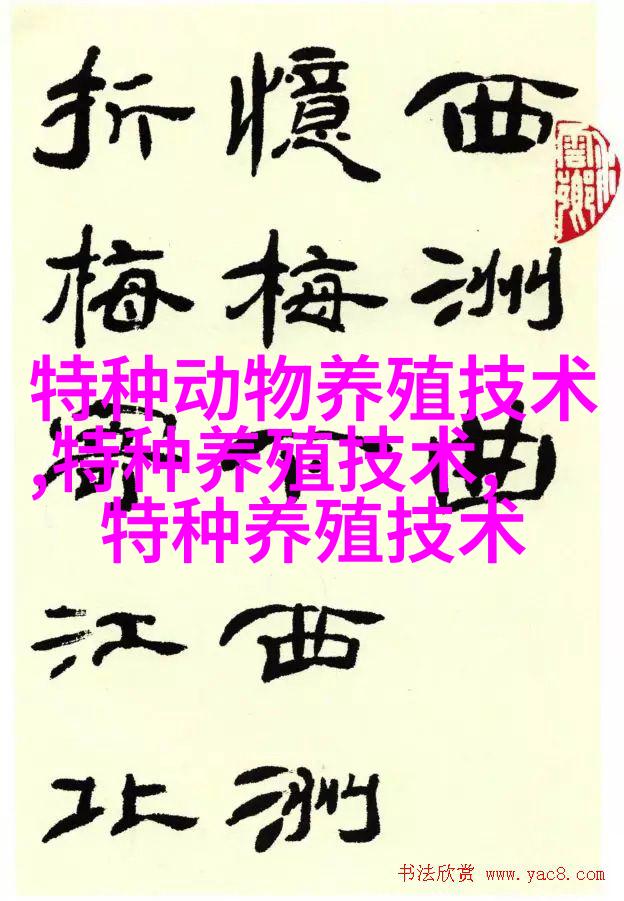 西洲曲
憶梅下西洲
折梅寄江北
特种动物养殖技术
,特种养殖技术,
特种养殖技术
书法欣赏 www.yac8.com